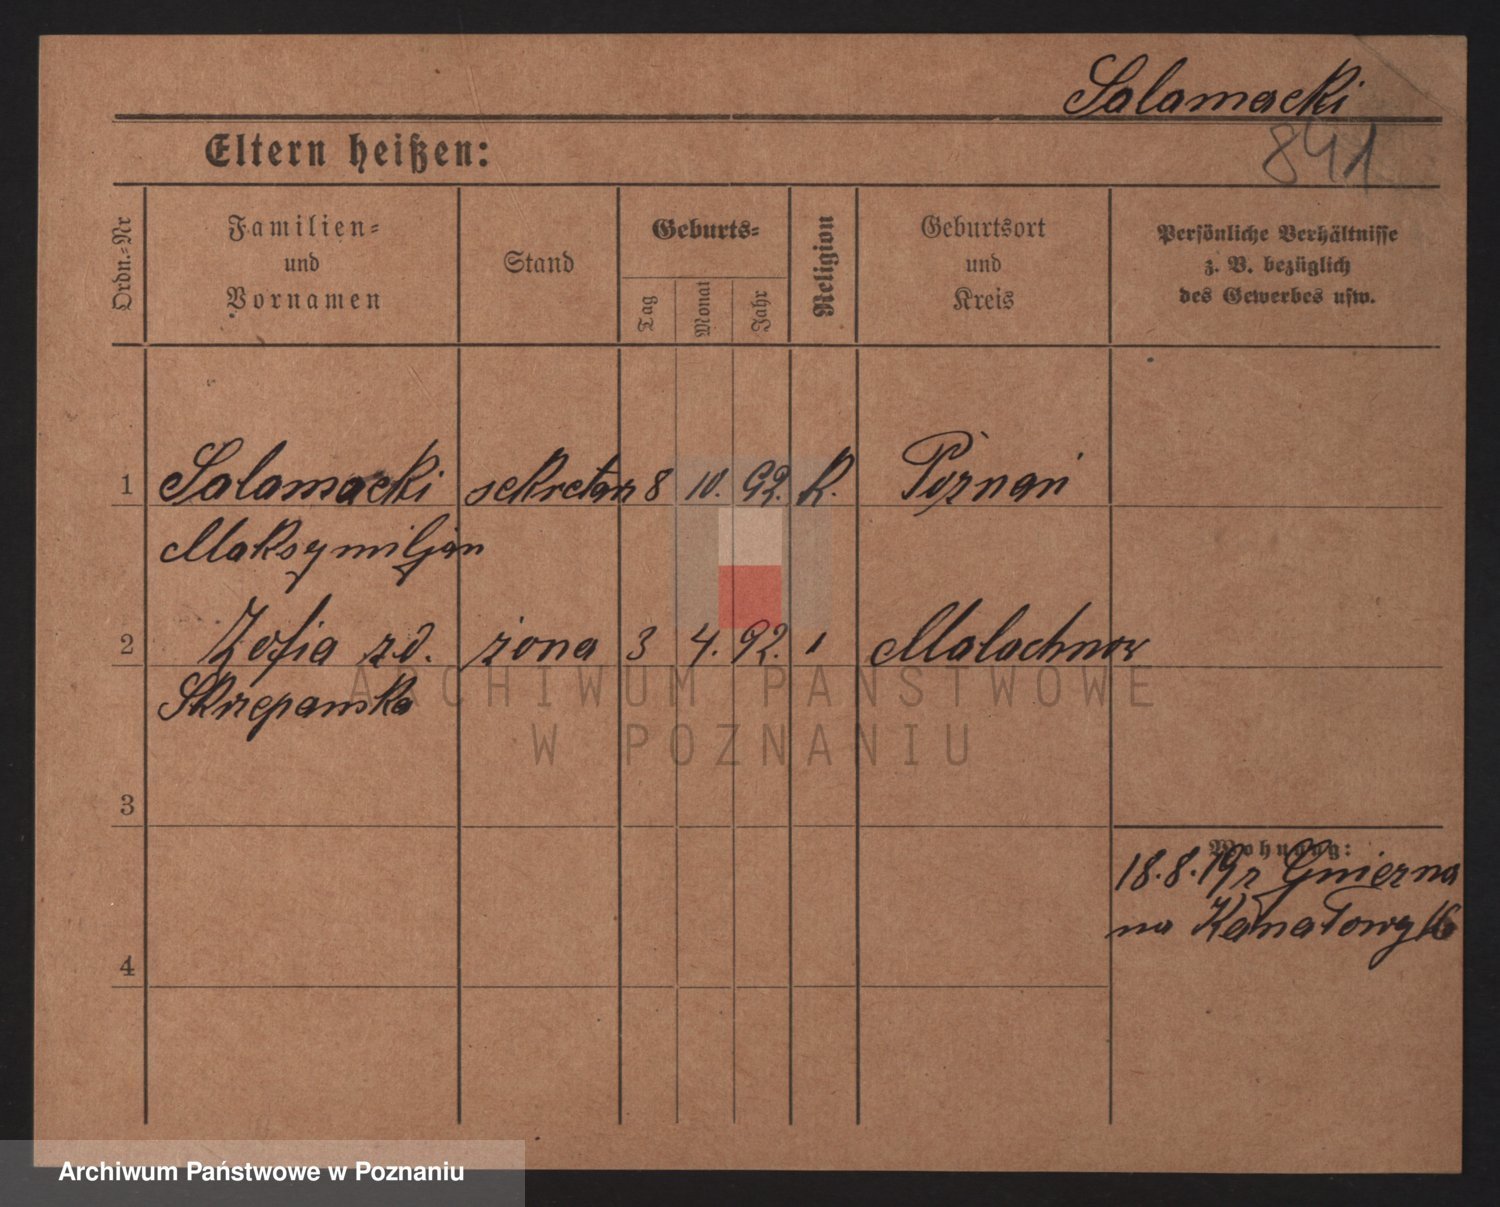 Salamacki
841
Eltern heißen:
Ordn.-Nr
Familien-
und
Vornamen
Stand
Geburts-
Tag
Monat
Jahr
Religion
Geburtsort
und
Kreis
Persönliche Verhältnisse
z. B. bezüglich
des Gewerbes usw.
1 Salamacki sekretarz 8 10. 92. K. Poznań
Maksymiljan
2 Zofia z d. żona 3 4. 92. " Malachnow
Skrzepanska
3
Wohnung:
18.8.19 r Gniezna
na Kanałowy 16
4
ARCHIWUM PAŃSTWOWE
W POZNANIU
Archiwum Państwowe w Poznaniu